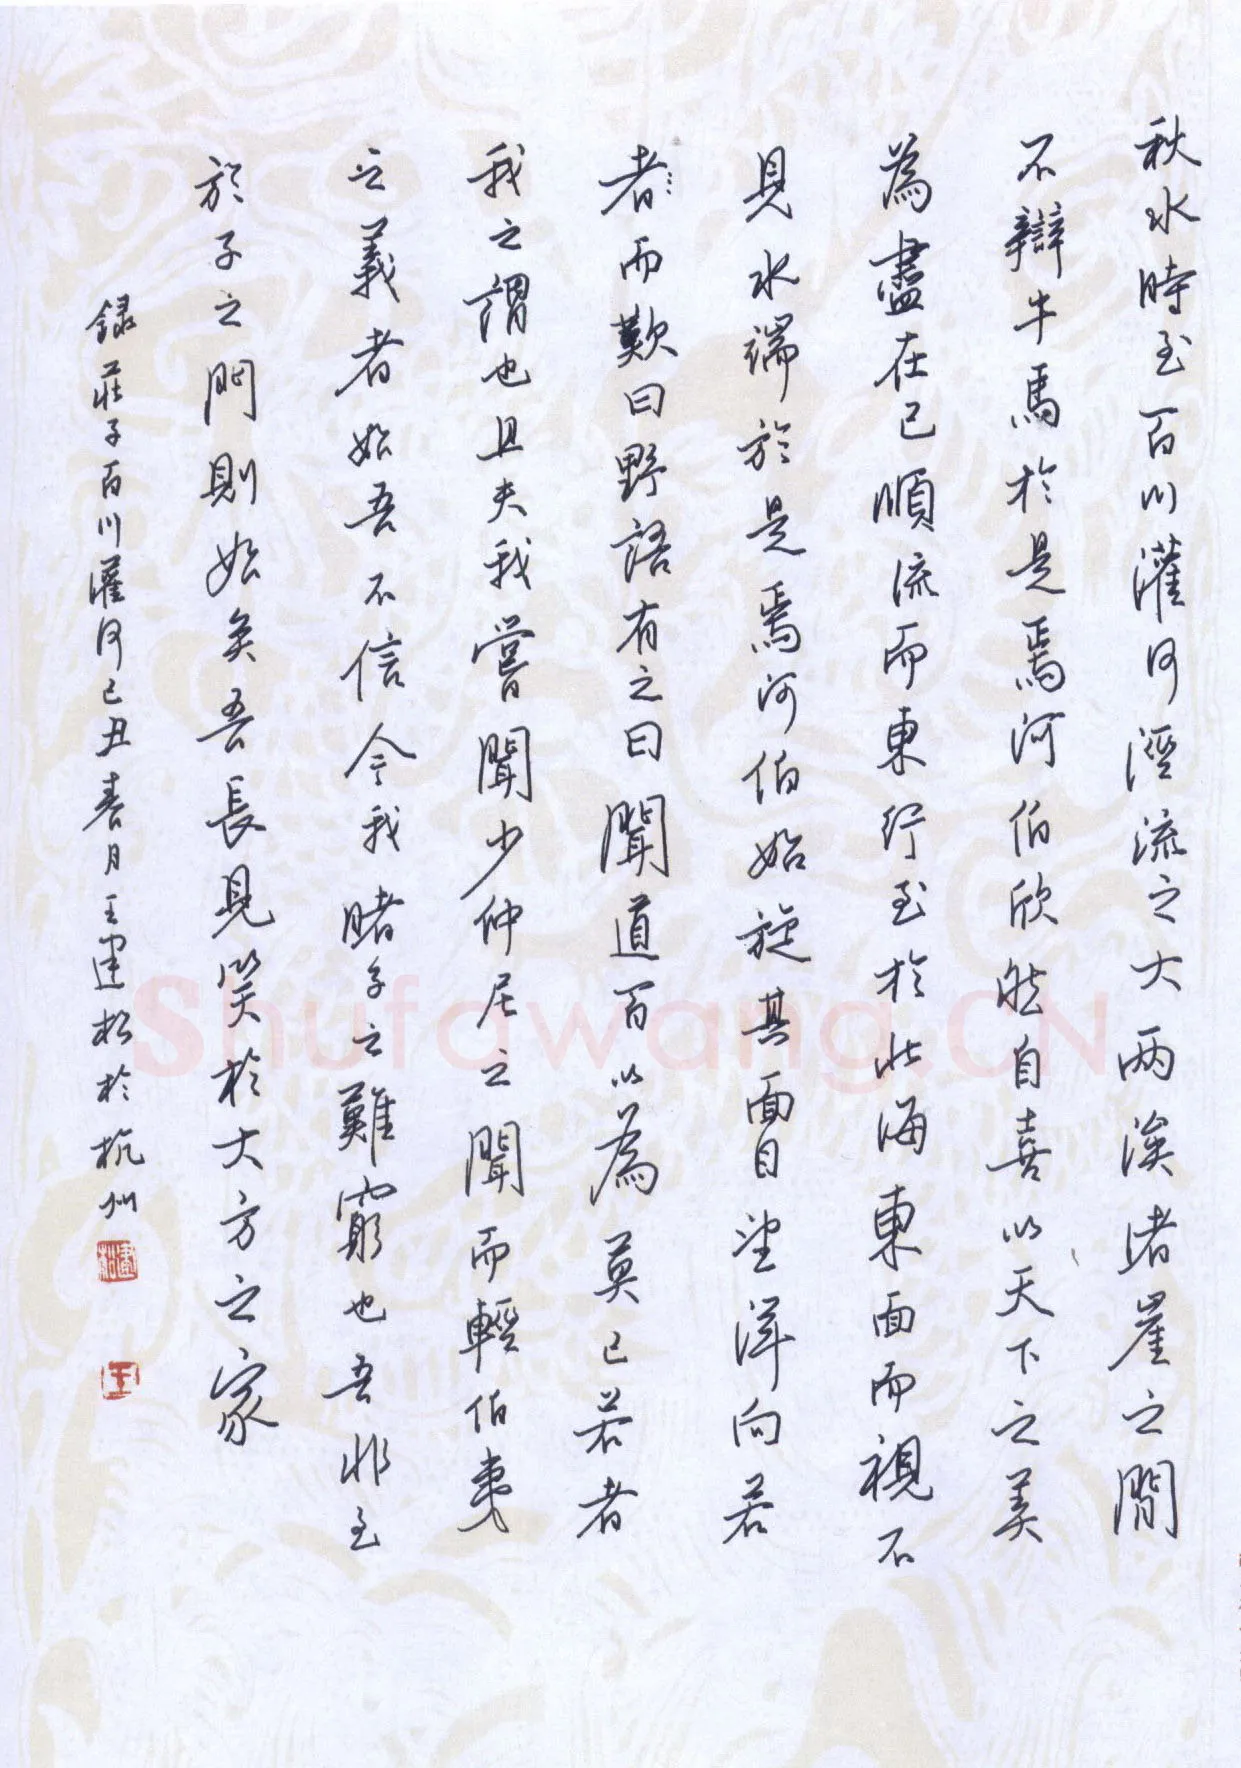 秋水時至百川灌河涇流之大兩涘渚崖之間
不辯牛馬於是焉河伯欣然自喜以天下之美
為盡在己順流而東行至於北海東面而視不
見水端於是焉河伯始旋其面目望洋向若
者而歎曰野語有之曰聞道百以為莫己若者
我之謂也且夫我嘗聞少仲尼之聞而輕伯夷
之義者始吾不信今我睹子之難窮也吾非至
於子之門則始矣吾長見笑於大方之家
録莊子百川灌河己丑春月王建松於杭州
建松
王
Shufawang.CN